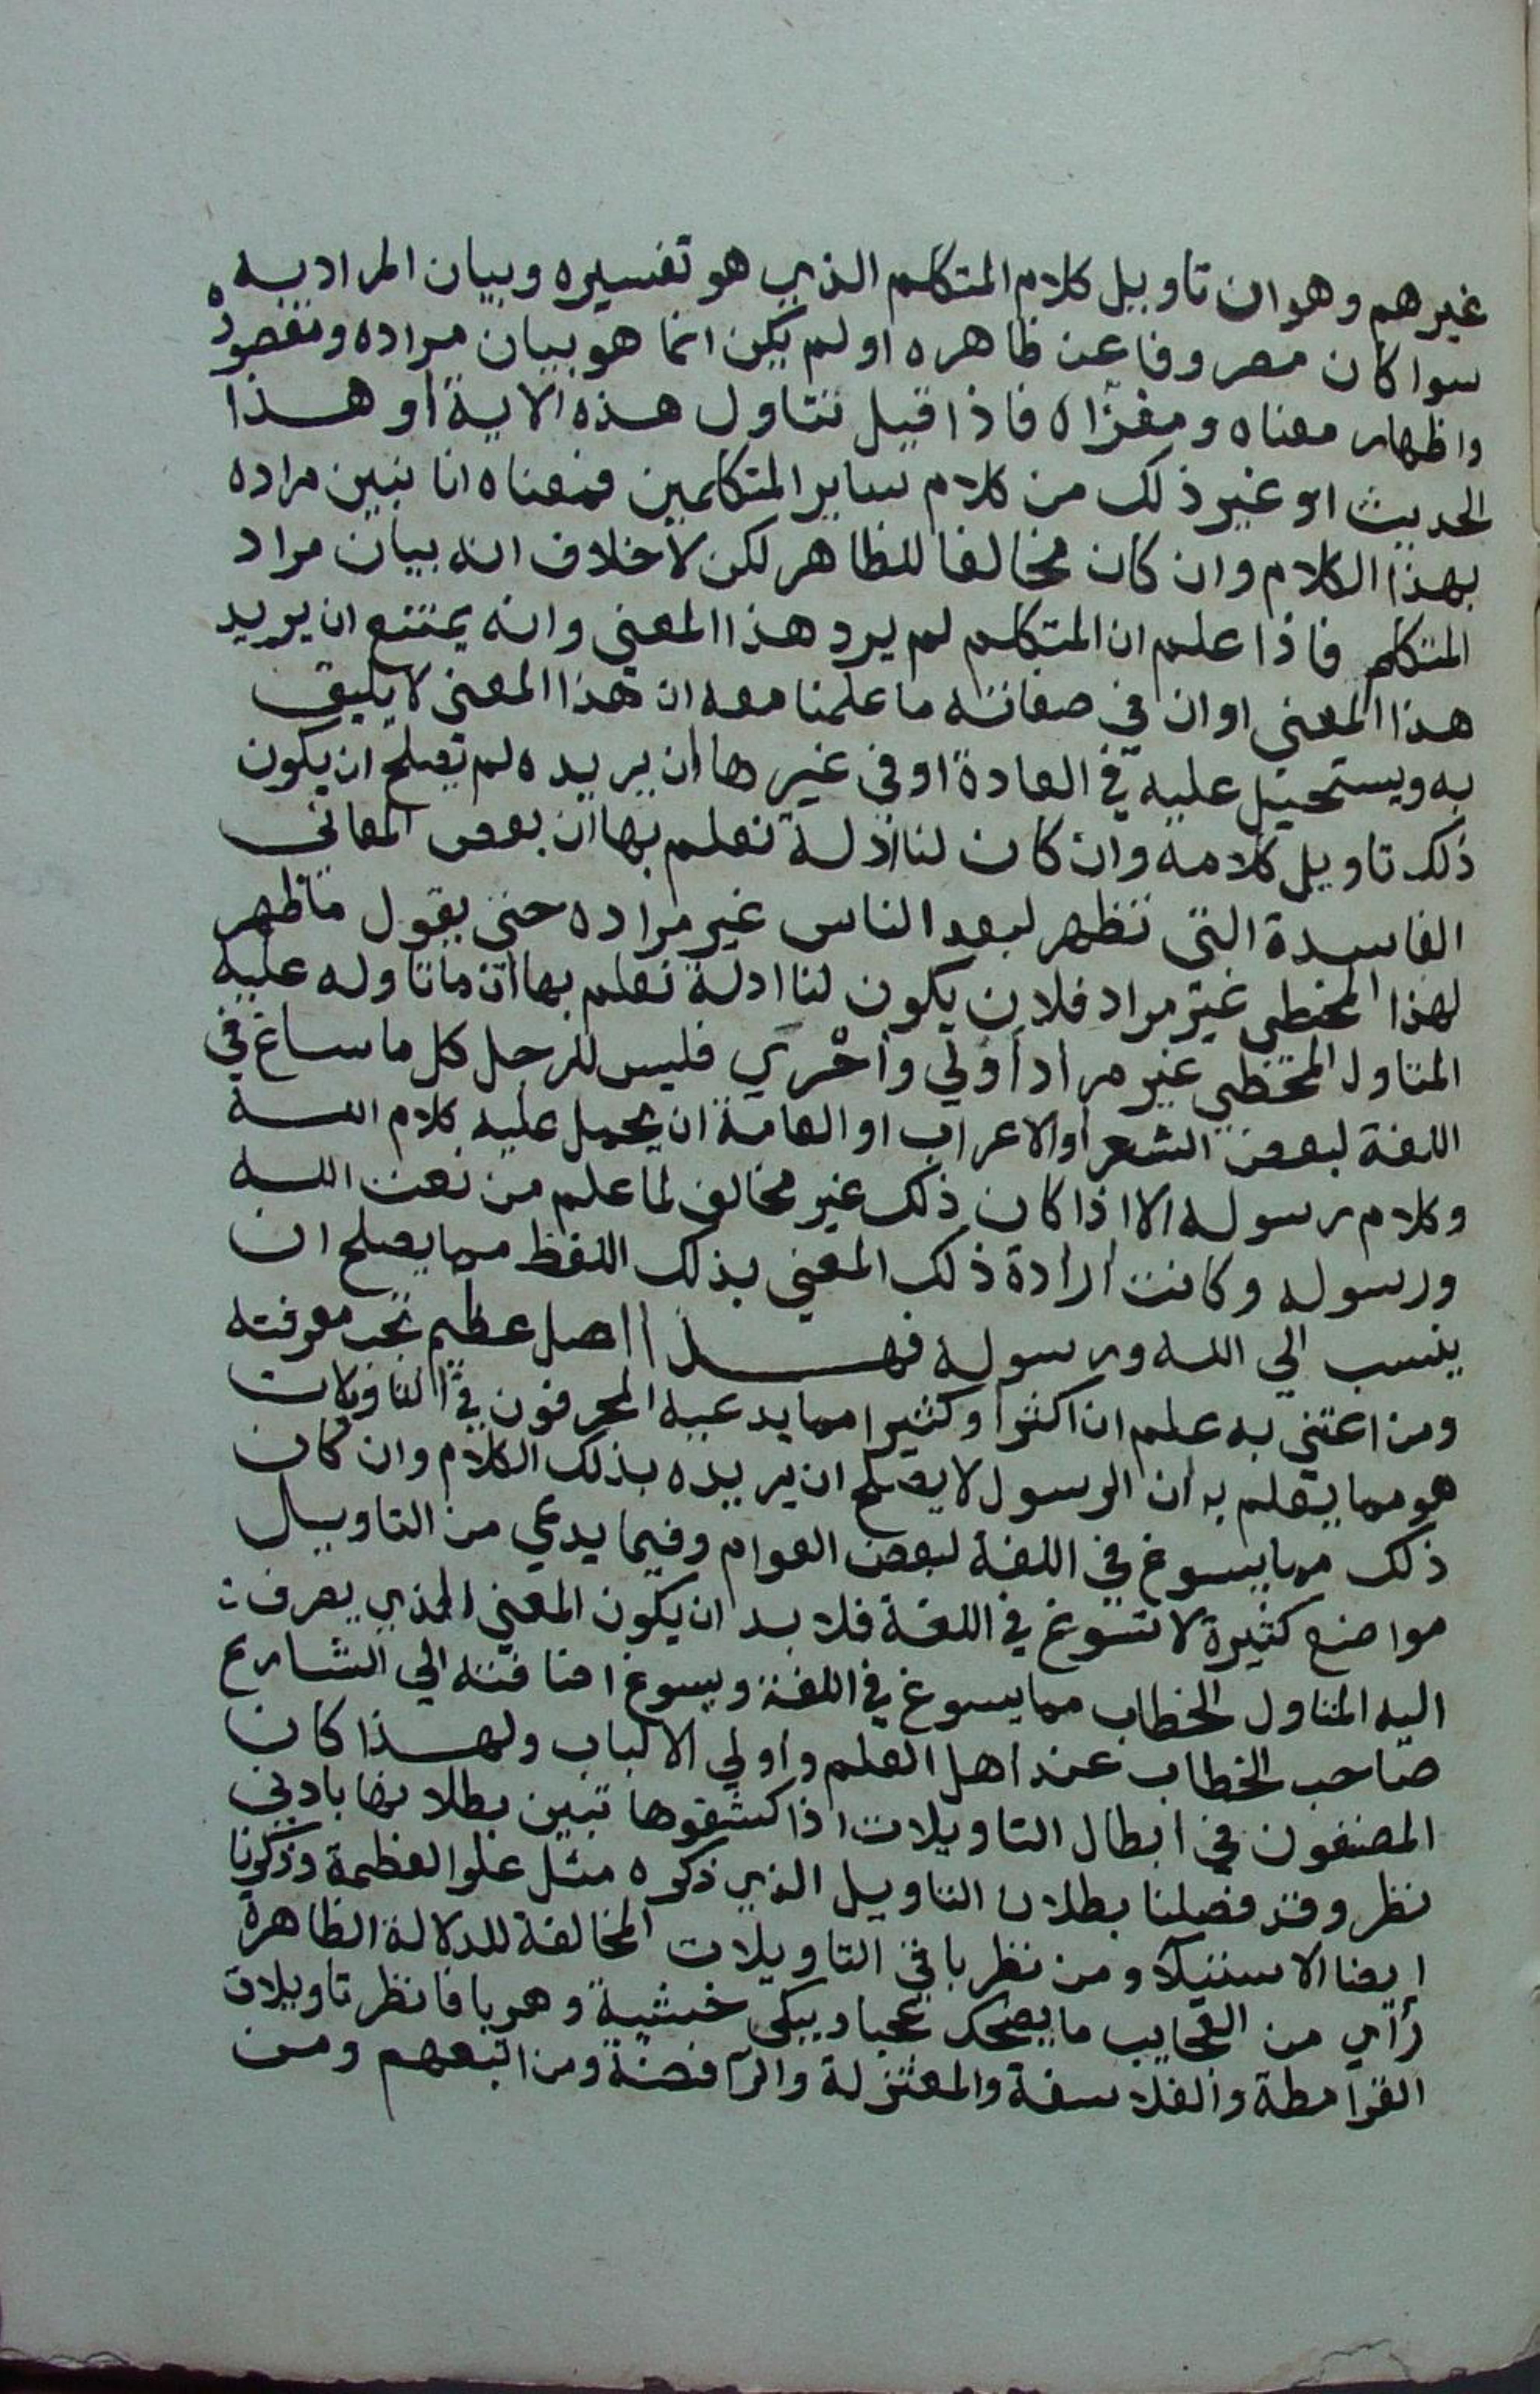 غيرهم وهو ان تاويل كلام المتكلم الذي هو تفسيره وبيان المراد به
سوا كان مصروفا عن ظاهره او لم يكن انما هو بيان مراده ومقصوده
واظهار معناه ومغزاه فاذا قيل نتاول هذه الاية او هذا
الحديث او غير ذلك من كلام ساير المتكلمين فمعناه انا نبين مراده
بهذا الكلام وان كان مخالفا للظاهر لكن لا خلاف انه بيان مراد
المتكلم فاذا علم ان المتكلم لم يرد هذا المعني وانه يمتنع ان يريد
هذا المعني او ان في صفاته ما علمنا معه ان هذا المعني لا يليق
به ويستحيل عليه في العادة او في غيرها ان يريده لم تصلح ان يكون
ذلك تاويل كلامه وان كان لنا ادلة نعلم بها ان بعض المعاني
الفاسدة التي تظهر لبعد الناس غير مراده حتي يقول ما ظهر
لهذا المخطي غير مراد فلان يكون لنا ادلة نعلم بها ان ما تاوله عليه
المتاول المخطي غير مراد اولي واحري فليس للرجل كل ما ساغ في
اللغة لبعض الشعر او الاعراب او العامة ان يحمل عليه كلام الله
وكلام رسوله الا اذا كان ذلك غير مخالف لما علم من نعت الله
ورسوله وكانت ارادة ذلك المعني بذلك اللفظ مما يصلح ان
ينسب الي الله ورسوله فهذا اصل عظيم تجب معرفته
ومن اعتني به علم ان اكثرا وكثيرا مما يدعيه المحرفون في التاويلات
هو مما يعلم به ان الرسول لا يصلح ان يريده بذلك الكلام وان كان
ذلك مما يسوغ في اللغة لبعض العوام وفيما يدعي من التاويل
مواضع كثيرة لا تسوغ في اللغة فلا بد ان يكون المعني الذي يصرف
اليه المتاول الخطاب مما يسوغ في اللغة ويسوغ اضافته الي الشارع
صاحب الخطاب عند اهل العلم واولي الالباب ولهذا كان
المصنفون في ابطال التاويلات اذا كشفوها تبين بطلانها بادني
نظر وقد فصلنا بطلان التاويل الذي ذكره مثل علو العظمة وذكرنا
ايضا الاستيلا ومن نظر باقي التاويلات المخالفة للدلالة الظاهرة
رأي من العجايب ما يضحك عجبا ويبكي خشية وهربا فانظر تاويلات
القرامطة والفلاسفة والمعتزلة والرافضة ومن اتبعهم ومن